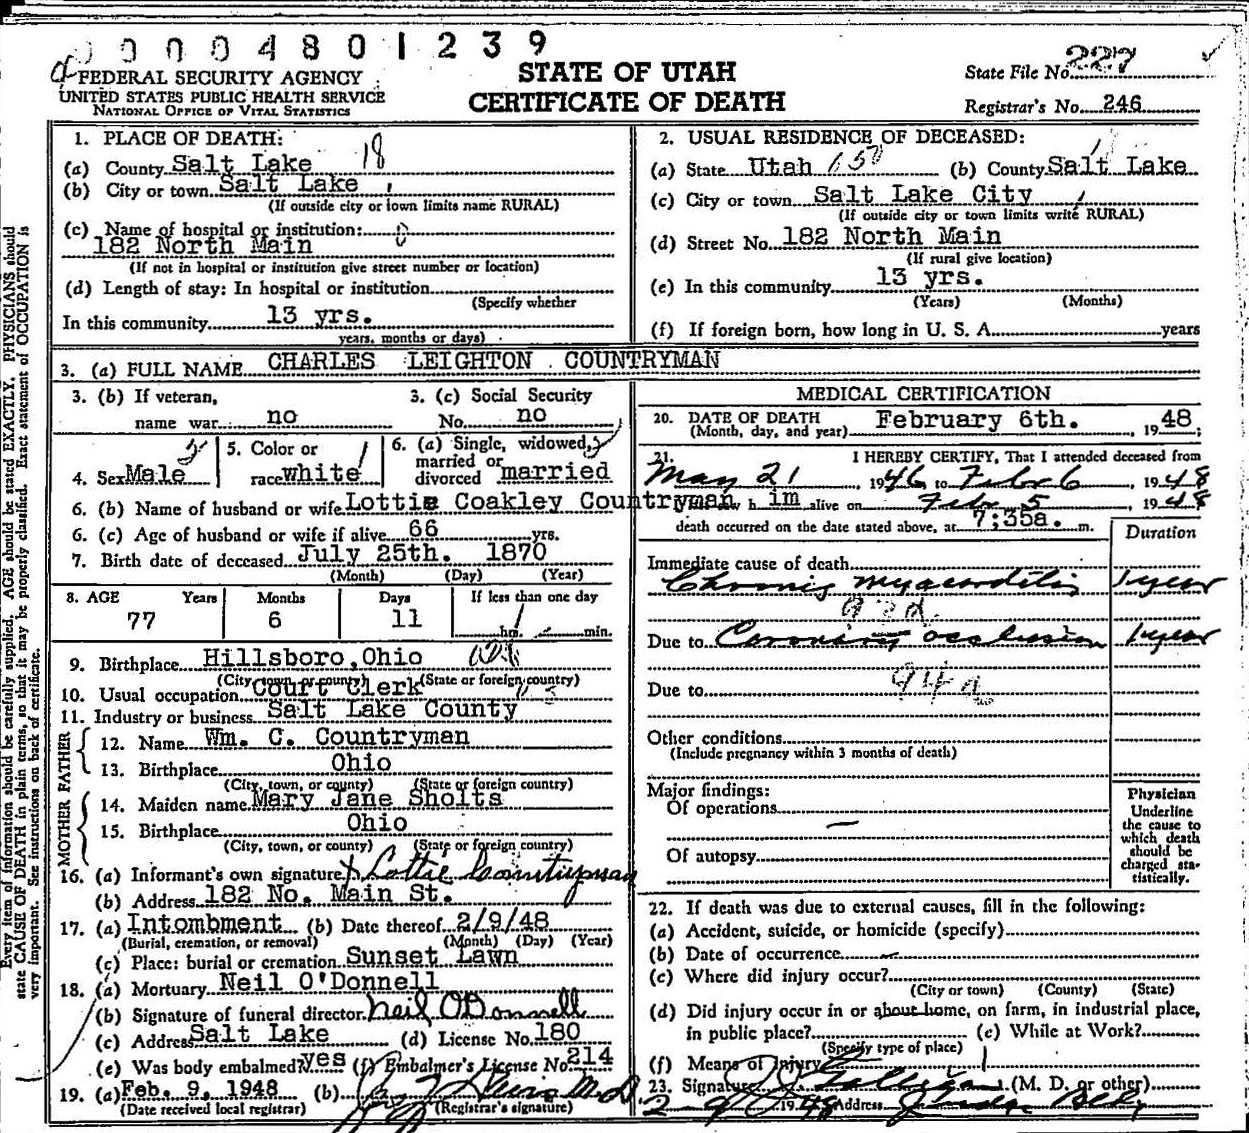 0 0 0 0 4 8 0 1 2 3 9
FEDERAL SECURITY AGENCY
UNITED STATES PUBLIC HEALTH SERVICE
NATIONAL OFFICE OF VITAL STATISTICS
STATE OF UTAH
CERTIFICATE OF DEATH
State File No. 227
Registrar's No. 246
1. PLACE OF DEATH:
(a) County Salt Lake 18
(b) City or town Salt Lake
(If outside city or town limits name RURAL)
(c) Name of hospital or institution:
182 North Main
(If not in hospital or institution give street number or location)
(d) Length of stay: In hospital or institution
(Specify whether
In this community 13 yrs.
years, months or days)
2. USUAL RESIDENCE OF DECEASED:
(a) State Utah 150 (b) County Salt Lake
(c) City or town Salt Lake City
(If outside city or town limits write RURAL)
(d) Street No. 182 North Main
(If rural give location)
(e) In this community 13 yrs.
(Years) (Months)
(f) If foreign born, how long in U. S. A. years
3. (a) FULL NAME CHARLES LEIGHTON COUNTRYMAN
3. (b) If veteran,
name war no
3. (c) Social Security
No. no
4. Sex Male
5. Color or
race white
6. (a) Single, widowed,
married or
divorced married
6. (b) Name of husband or wife Lottie Coakley Countryman
6. (c) Age of husband or wife if alive 66 yrs.
7. Birth date of deceased July 25th. 1870
(Month) (Day) (Year)
8. AGE Years Months Days If less than one day
77 6 11 hr. min.
9. Birthplace Hillsboro, Ohio
(City, town, or county) (State or foreign country)
10. Usual occupation Court Clerk
11. Industry or business Salt Lake County
FATHER
12. Name Wm. C. Countryman
13. Birthplace Ohio
(City, town, or county) (State or foreign country)
MOTHER
14. Maiden name Mary Jane Sholts
15. Birthplace Ohio
(City, town, or county) (State or foreign country)
16. (a) Informant's own signature X Lottie Countryman
(b) Address 182 No. Main St.
17. (a) Intombment (b) Date thereof 2/9/48
(Burial, cremation, or removal) (Month) (Day) (Year)
(c) Place: burial or cremation Sunset Lawn
18. (a) Mortuary Neil O'Donnell
(b) Signature of funeral director Neil O'Donnell
(c) Address Salt Lake (d) License No. 180
(e) Was body embalmed? yes (f) Embalmer's License No. 214
19. (a) Feb. 9, 1948 (b) M.D.
(Date received local registrar) (Registrar's signature)
MEDICAL CERTIFICATION
20. DATE OF DEATH
(Month, day, and year) February 6th. , 1948;
21. I HEREBY CERTIFY, That I attended deceased from
May 21 , 1946 to Feb 6 , 1948
h im alive on Feb 5 , 1948
death occurred on the date stated above, at 7:35a. m.
Duration
Immediate cause of death
Chronic myocarditis 1 year
92d.
Due to Coronary occlusion 1 year
94a
Due to
Other conditions
(Include pregnancy within 3 months of death)
Major findings:
Of operations
Of autopsy
Physician
Underline
the cause to
which death
should be
charged sta-
tistically.
22. If death was due to external causes, fill in the following:
(a) Accident, suicide, or homicide (specify)
(b) Date of occurrence
(c) Where did injury occur?
(City or town) (County) (State)
(d) Did injury occur in or about home, on farm, in industrial place,
in public place? (e) While at Work?
(Specify type of place)
(f) Means of Injury
23. Signature (M. D. or other)
2-9 1948 Address Bldg
Every item of information should be carefully supplied. AGE should be stated EXACTLY. PHYSICIANS should
state CAUSE OF DEATH in plain terms, so that it may be properly classified. Exact statement of OCCUPATION is
very important. See instructions on back of certificate.